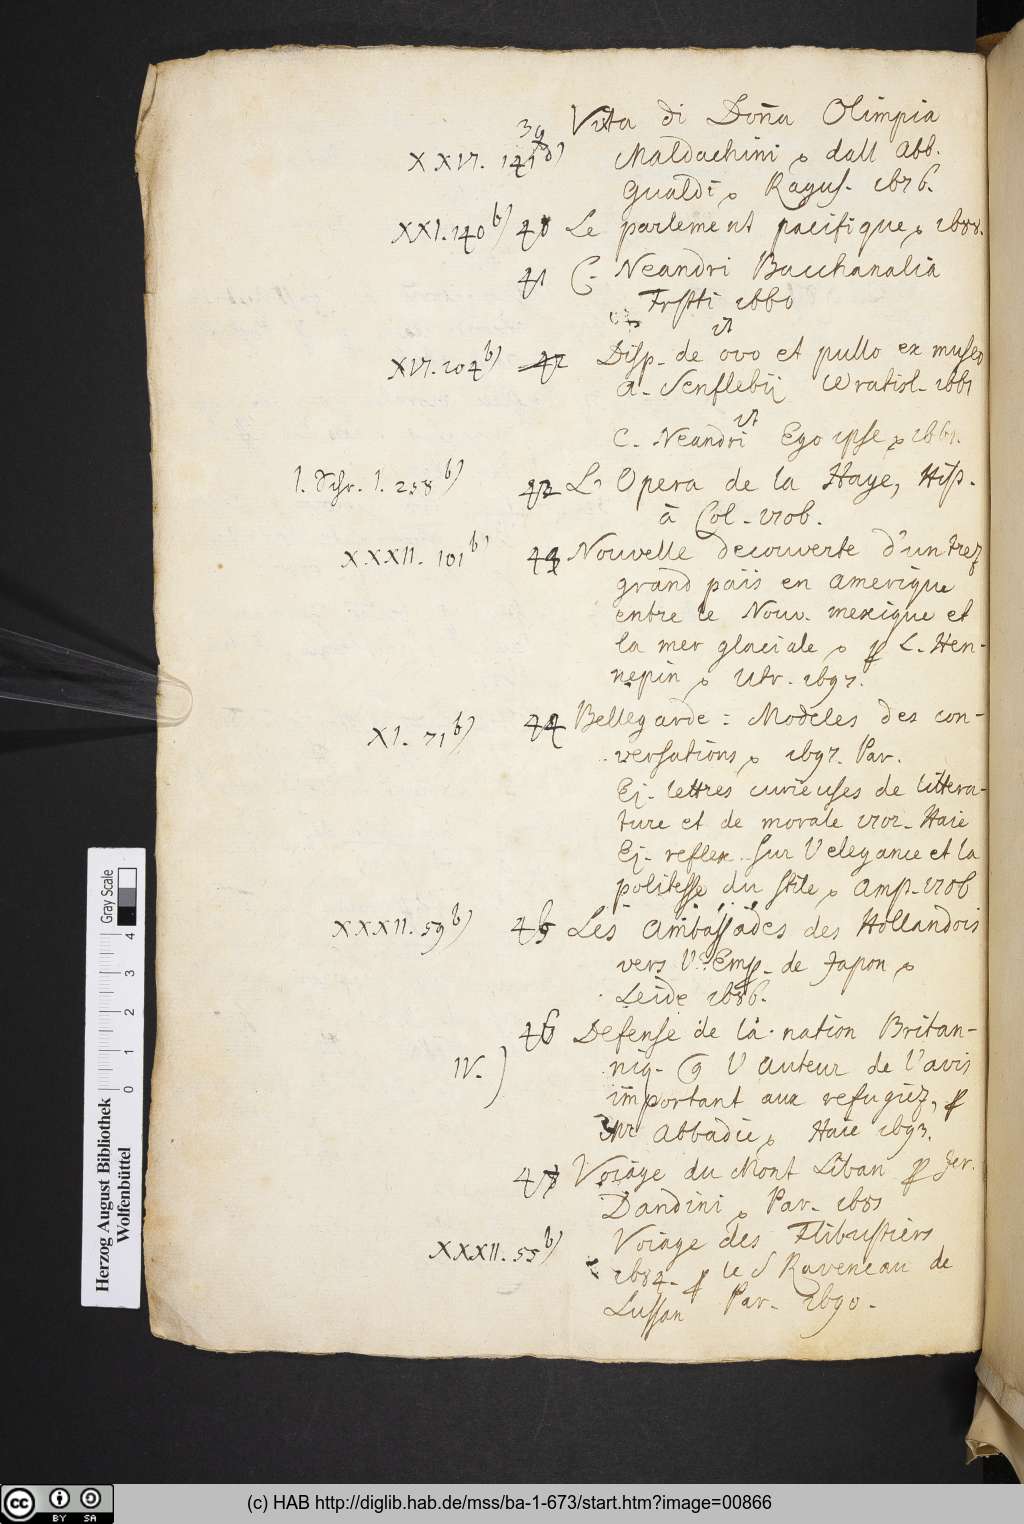 39 Vita di Doña Olimpia
XXVI. 141 b) Maldachini, dall Abb.
Gualdi, Ragus. 1676.
XXI. 140 b) 40 Le parlement pacifique, 1688.
41 C. Neandri Bacchanalia
1660
XVI. 204 b) 42 Disp. de ovo et pullo ex museo
A. Senflebij Wratisl. 1661
C. Neandri Ego ipse, 1661.
1. 258 b) L' Opera de la Haye, Hist.
à Col. 1706.
XXXII. 101 b) 43 Nouvelle decouverte d'un trez
grand païs en Amerique
entre le Nouv. Mexique et
la mer glaciale, L. Hen-
nepin, Utr. 1697.
XI. 71 b) 44 Bellegarde: Modeles des con-
versations, 1697. Par.
Ej. lettres curieuses de littera-
ture et de morale 1702. Haie
Ej. reflex. sur l'elegance et la
politesse du stile, Amst. 1706
XXXII. 59 b) 45 Les Ambassades des Hollandois
vers l'Emp. de Japon,
Leide 1686.
46 Defense de la nation Britan-
IV. ) niq. l'auteur de l'avis
important aux refugiez,
Mr Abbadie, Haie 1693.
47 Voiage du Mont Liban Jer.
Dandini, Par. 1685
XXXII. 55 b) Voiage des Flibustiers
1684. le S Raveneau de
Lussan Par. 1690.
Gray Scale
4
3
2
1
0
Herzog August Bibliothek
Wolfenbüttel
cc BY SA
(c) HAB http://diglib.hab.de/mss/ba-1-673/start.htm?image=00866